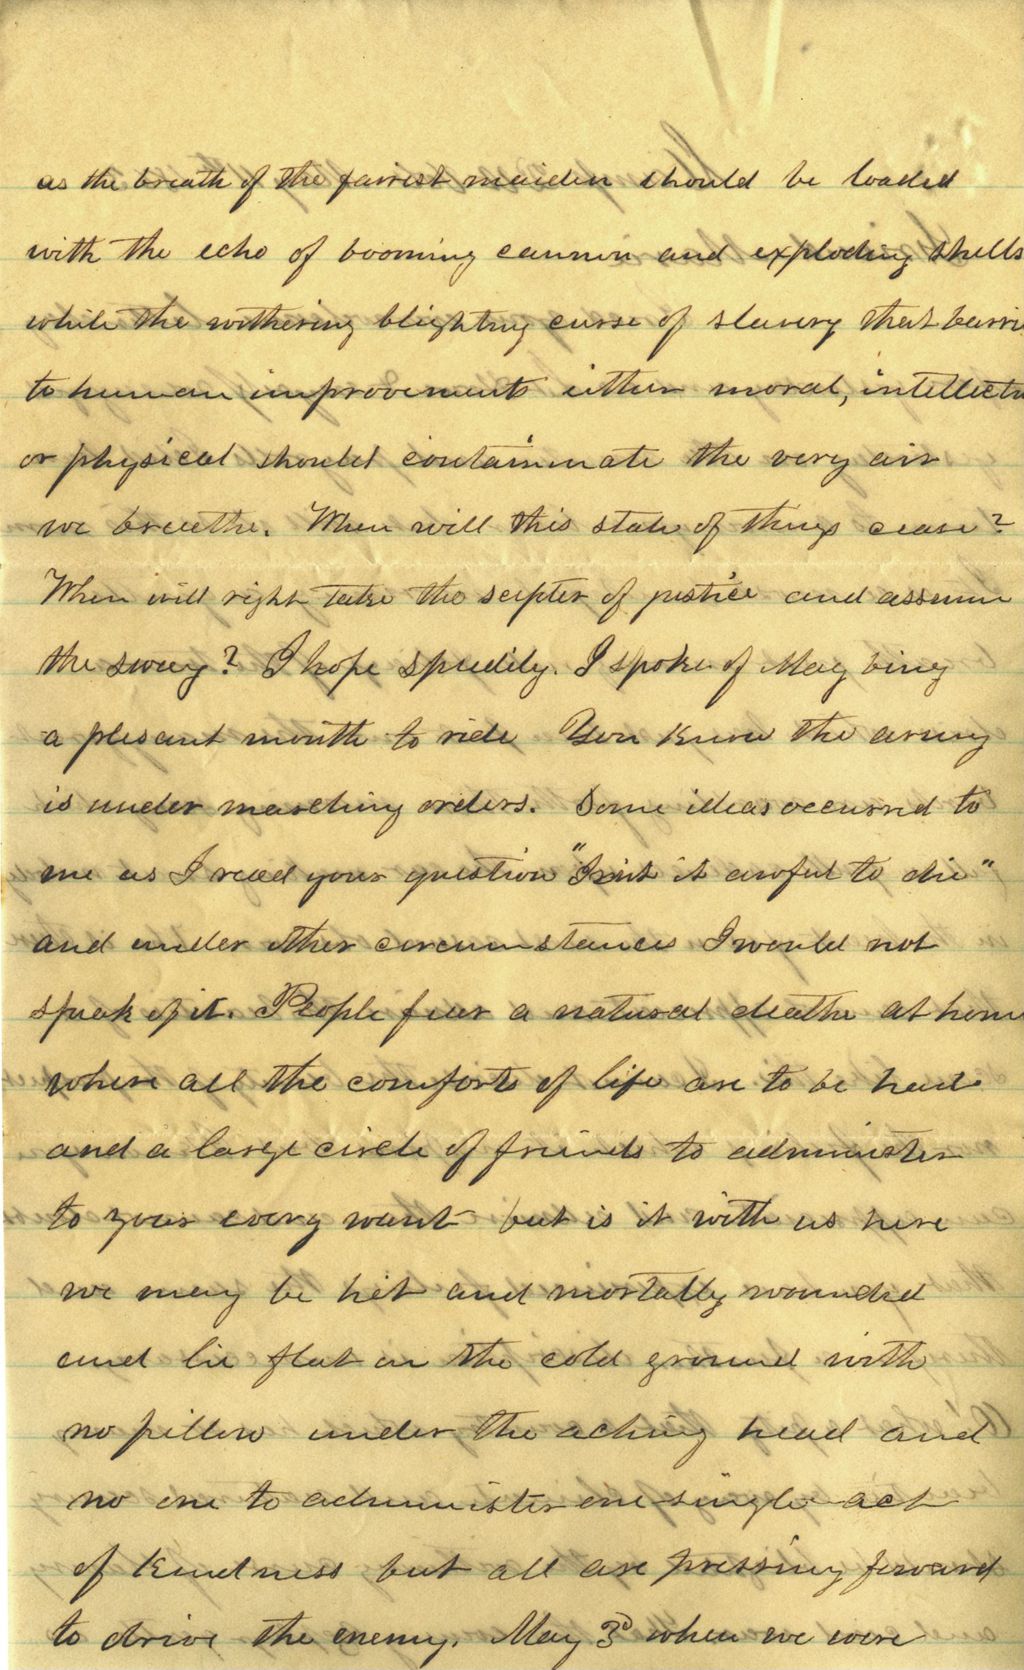 as the breath of the fairest maiden should be loaded
with the echo of booming cannon and exploding shells
while the withering blighting curse of slavery that barri
to human improvements either moral, intellectu
or physical should contaminate the very air
we breathe. When will this state of things cease?
When will right take the scepter of justice and assume
the sway? I hope speedily. I spoke of May being
a plesant month to ride You know the army
is under marching orders. Some ideas occurred to
me as I read your question "Isint it awful to die"
and under other circumstances I would not
speak of it. People fear a natural death at home
where all the comforts of life are to be had
and a large circle of friends to administer
to your every want but is it with us here
we may be hit and mortally wounded
and lie flat on the cold ground with
no pillow under the aching head and
no one to administer one single act
of kindness but all are pressing forward
to drive the enemy. May 3d when we were